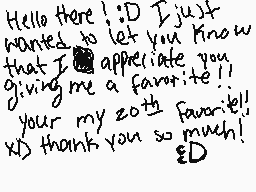 Hello there! :D I just
wanted to let you know
that I appreciate you
giving me a favorite!!
your my 20th favorite!!
XD thank you so much!
:D